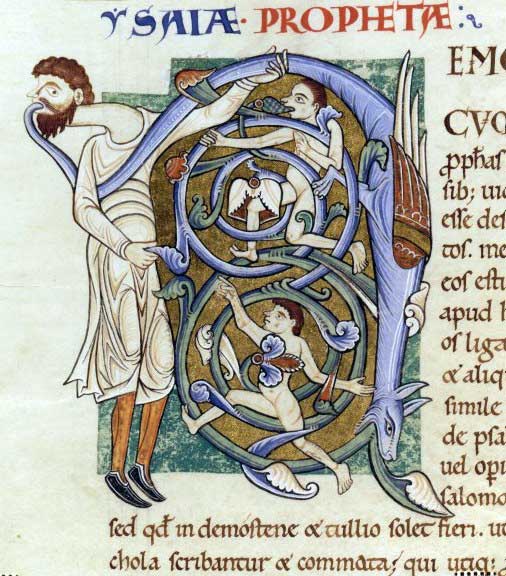 YSAIÆ · PROPHETÆ :
EMO
CVO
pphas
sib; uid
esse des
tos. me
eos estu
apud h
os liga
& aliq
simile
de psa
uel opi
salomo
sed qđ in demostene & tullio solet fieri. ut
chola scribantur & commata; qui utiq;